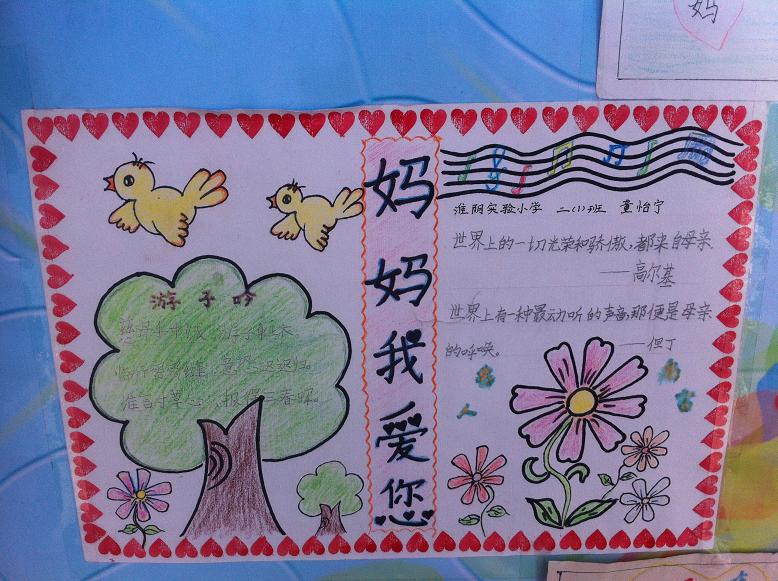 妈
妈妈我爱你
游子吟
慈母手中线 游子身上衣
临行密密缝,意恐迟迟归。
谁言寸草心,报得三春晖。
淮阴实验小学 二(1)班 董怡宁
世界上的一切光荣和骄傲,都来自母亲
——高尔基
世界上有一种最动听的声音那便是母亲
的呼唤。 ——但丁